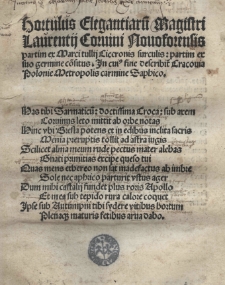 Hortulus Elegantiarũ Magistri
Laurentij Corvini Novoforensis
partim ex Marci tullij Ciceronis surculis: partim ex
suo germine cõsitus. In cuiꝰ fine describit̃ Cracovia
Polonie Metropolis carmine Saphico.
Has tibi Sarmatici: doctissima Croca: sub arem
Corvinus leto mittit ab orbe notas
Hinc ubi Slesia potens et in edibus inclita sacris
Menia tollit ad astra
Scilicet alma meum rude pectus mater alebas
Gnati primitias excipe queso tui
Quas mens ethereo non sit madefactus ab imbre
Sole nec aphrico parturit ustus ager
Dum mihi castalij fundet plus roris Apollo
Et me sub tepido rura calore coquet
Ipse sub Autumpni tibi sydere vitibus hortum
Plenaqꝫ maturis fetibus arva dabo.